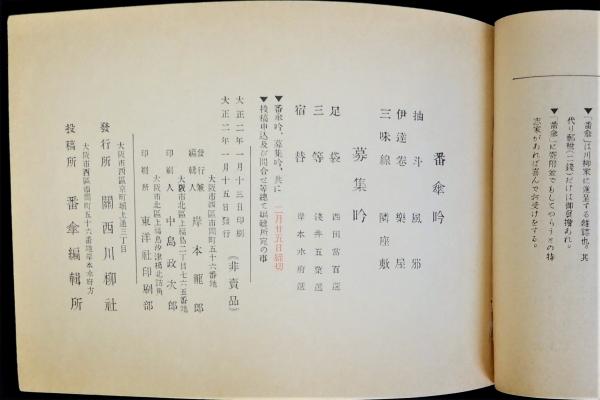 ▼「番傘」は川柳家に進呈する雑誌也。其
代り郵税(二銭)だけは御負擔あれ。
▼「番傘」に寄附金でもしてやらうとの特
志家があれば喜んでお受けをする。
番傘吟
抽斗 風邪
伊達卷 樂屋
三味線 隣座敷
募集吟
足袋 西田當百選
三等 淺井五葉選
宿替 岸本水府選
▼番傘吟、募集吟、共に 二月廿五日締切
▼投稿申込及び問合せ等總て編輯所宛の事
大正二年一月十三日印刷
大正二年一月十五日發行 (非賣品)
大阪市西區市岡町五十六番地
發行兼編輯人 岸本龍郎
大阪市北區上福島二丁目七六五番地
印刷人 中島政次郎
大阪市北區上福島汐津橋北詰角
印刷所 東洋社印刷部
大阪市西區京町堀上通三丁目
發行所 關西川柳社
大阪市西區市岡町五十六番地岸本水府方
投稿所 番傘編輯所